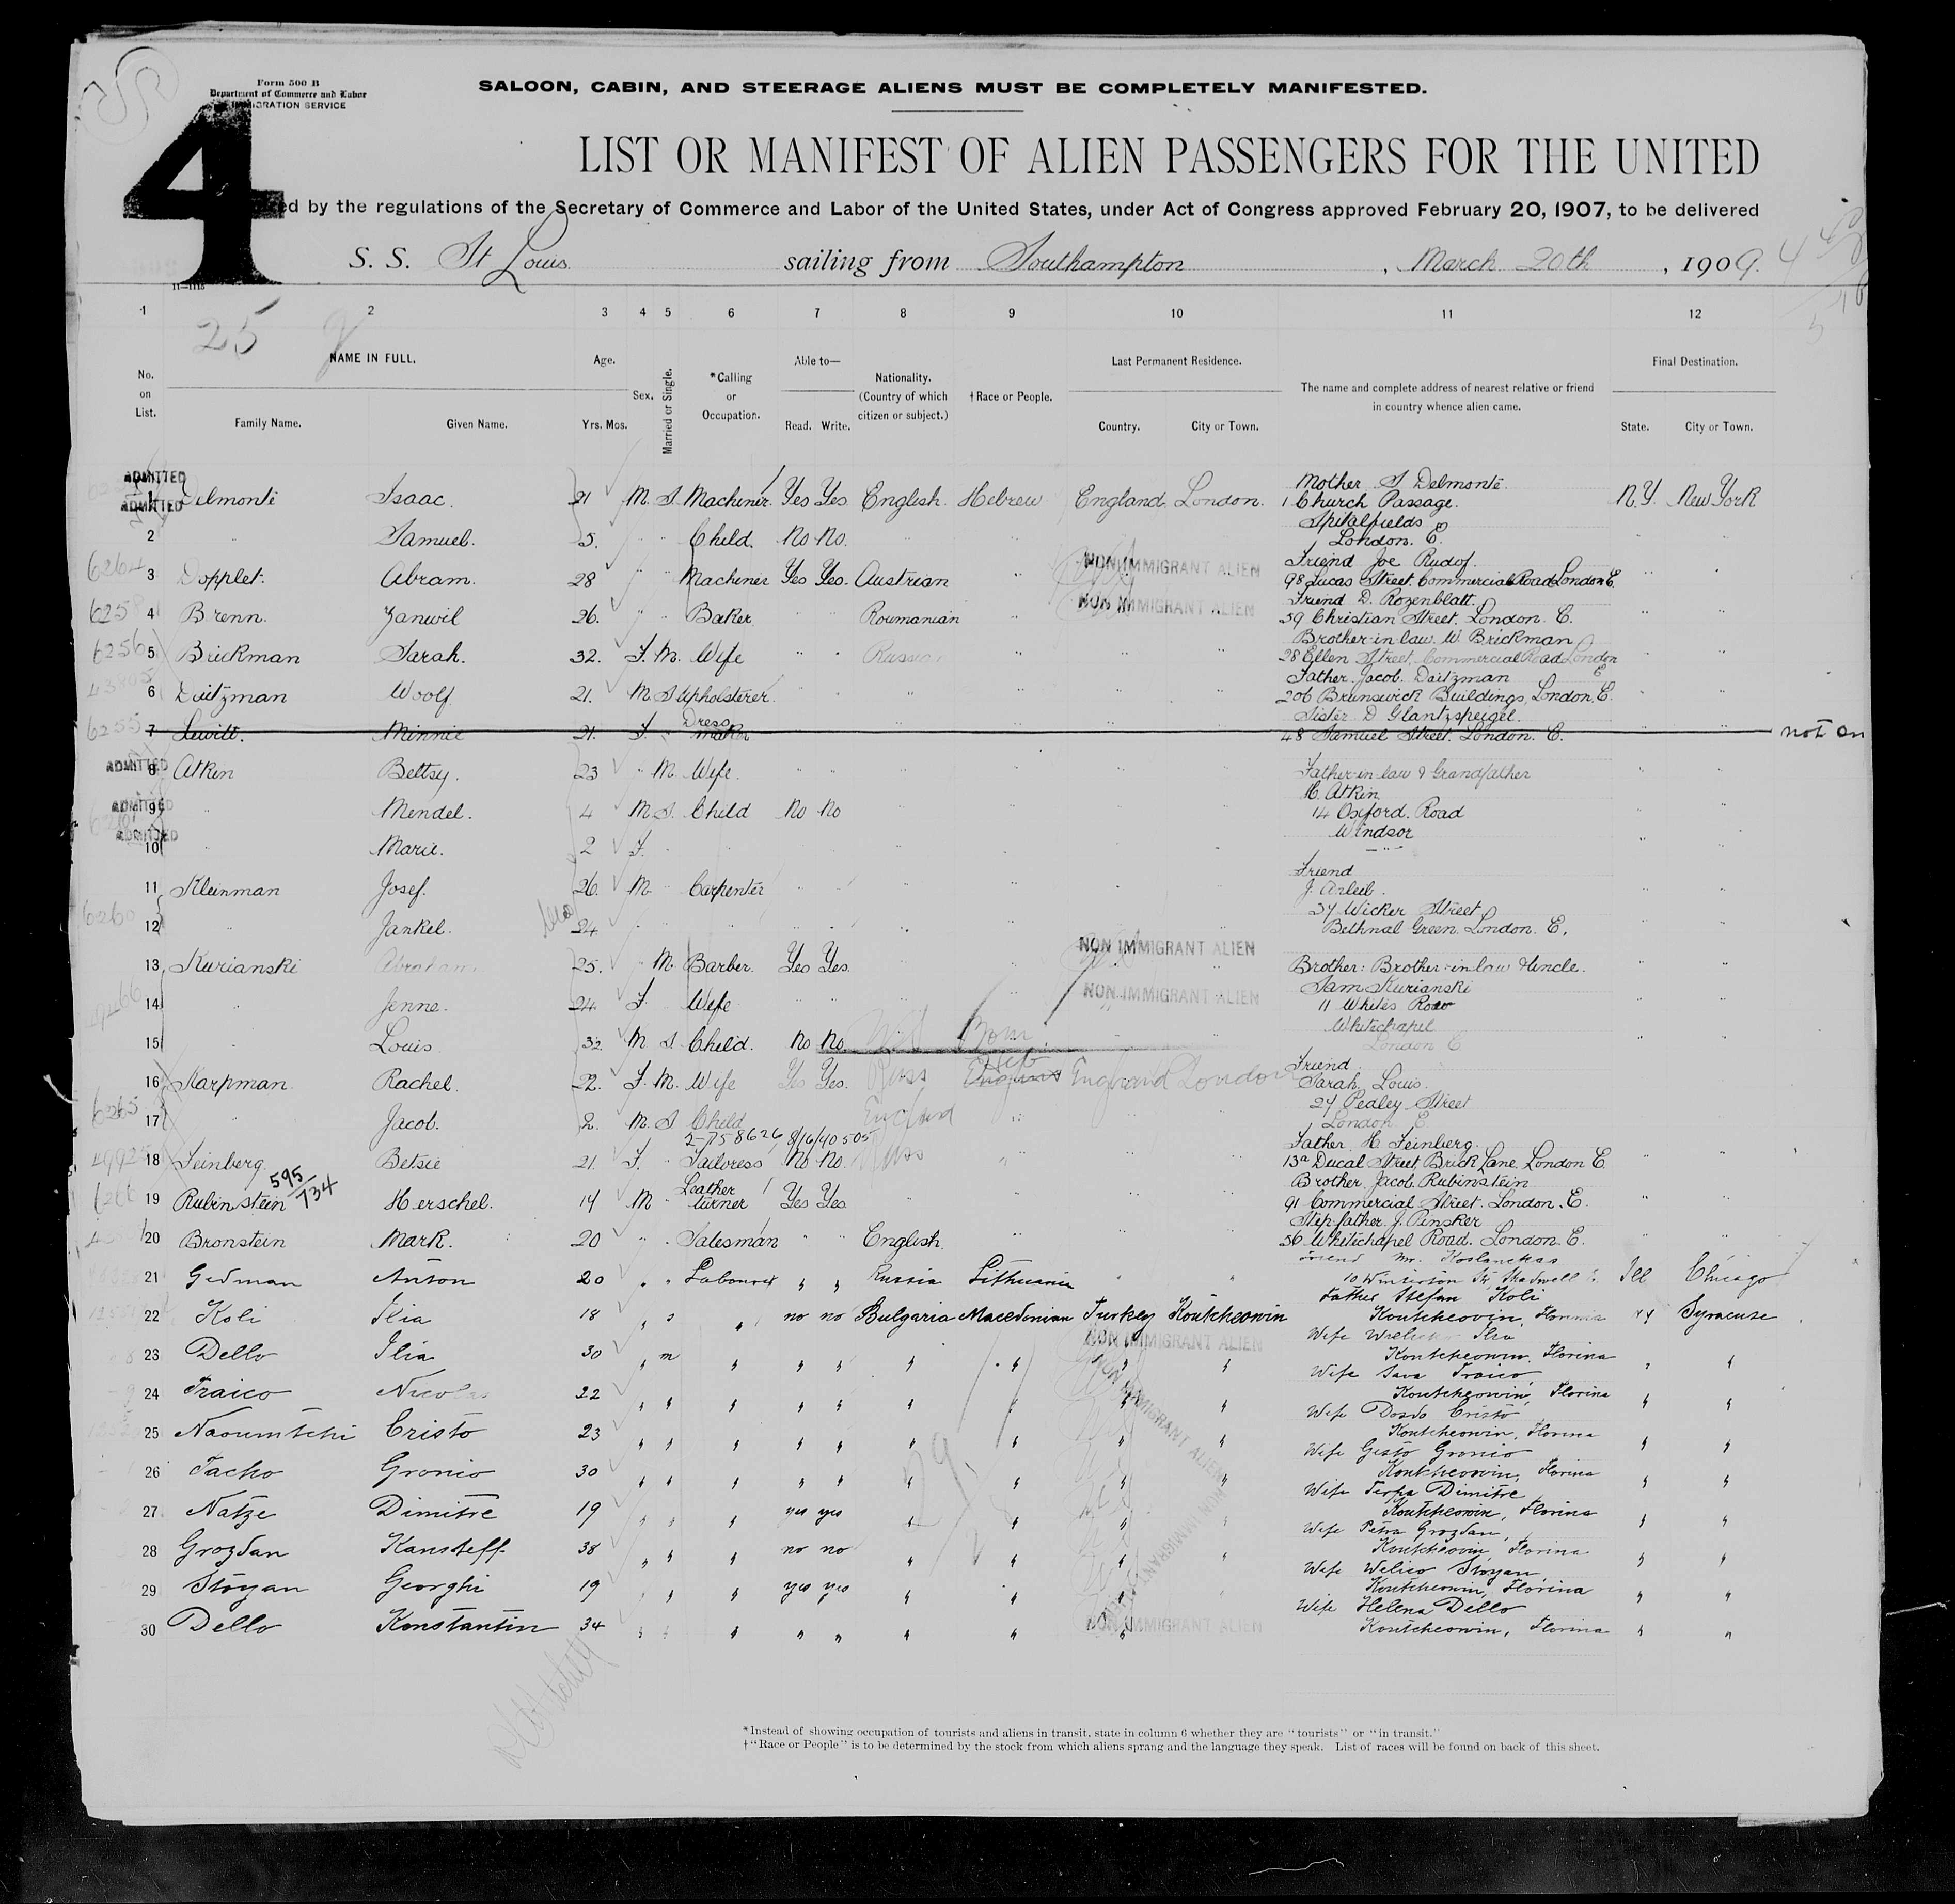 Form 500 B
Department of Commerce and Labor
IMMIGRATION SERVICE
4
SALOON, CABIN, AND STEERAGE ALIENS MUST BE COMPLETELY MANIFESTED.
LIST OR MANIFEST OF ALIEN PASSENGERS FOR THE UNITED
ed by the regulations of the Secretary of Commerce and Labor of the United States, under Act of Congress approved February 20, 1907, to be delivered
S. S. St Louis sailing from Southampton, March 20th, 1909.
11—1115
1 2 3 4 5 6 7 8 9 10 11 12
25
No. on List.
NAME IN FULL.
Family Name. Given Name.
Age. Yrs. Mos.
Sex.
Married or Single.
*Calling or Occupation.
Able to— Read. Write.
Nationality. (Country of which citizen or subject.)
†Race or People.
Last Permanent Residence. Country. City or Town.
The name and complete address of nearest relative or friend in country whence alien came.
Final Destination. State. City or Town.
ADMITTED
ADMITTED
1 Delmonte Isaac. 21 M. S. Machiner. Yes Yes English. Hebrew England London. Mother S Delmonte 1 Church Passage. N.Y. New York
2 " Samuel. 5. " " Child. No No. " " Spitalfields London. E.
6264 3 Dopplet. Abram. 28 " " Machiner Yes Yes. Austrian " NON IMMIGRANT ALIEN Friend Joe Rudof. 98 Lucas Street. Commercial Road London E.
6258 4 Brenn. Zanwil 26. " " Baker " " Roumanian " NON IMMIGRANT ALIEN Friend D. Rozenblatt. 39 Christian Street. London. E.
6256 5 Brickman Sarah. 32. F. M. Wife " " Russian " " " Brother-in-law W Brickman 28 Ellen Street, Commercial Road London E
6 Daitzman Woolf 21. M S Upholsterer. " " " " " " Father Jacob. Daitzman 206 Brunswick Buildings, London. E.
6255 7 Lewitt. Minnie 21. F. " Dress maker " " " " Sister D Glantzspeigel. 48 Samuel Street. London. E. not on
ADMITTED 8 Atkin Bettsy. 23 " M. Wife. " " Father-in-law & Grandfather
ADMITTED 9 " Mendel. 4 M S. Child No No H. Atkin 14 Oxford. Road
ADMITTED 10 " Marie. 2 F. " " Windsor
11 Kleinman Josef. 26. M. " Carpenter " " Friend J. Arleib.
6260 12 " Jankel. 24. " " " " 37 Wicker Street Bethnal Green. London. E.
NON IMMIGRANT ALIEN
13 Kurianski Abraham. 25. " M. Barber. Yes Yes. Brother: Brother-in-law & Uncle.
14 " Jenne. 24 F. Wife " " NON IMMIGRANT ALIEN Sam Kurianski 11 Whites Row
15 " Louis 3 M S Child. No No Born Whitechapel London E
16 Karpman. Rachel. 22. F. M. Wife Yes Yes. Russ Heb England London Friend Sarah Louis.
6265 17 " Jacob. 2. M. S Child England " 27 Pedley Street London. E.
2-758626 8/16/40 505
18 Feinberg. Betsie 21. F. " Tailoress No No. Russ " Father H. Feinberg. 13a Ducal Street, Brick Lane. London E.
595/734
19 Rubinstein Herschel. 14 M " Leather turner Yes Yes Brother Jacob. Rubinstein 91 Commercial Street. London. E.
20 Bronstein Mark. 20 " . Salesman " " English. " Step-father. J. Pinsker 56 Whitechapel Road. London. E.
21 Gedman Anton 20 " " Labourer " " Russia Lithuania " " Friend Mr. Ill Chicago
22 Koli Ilia 18 " s " no no Bulgaria Macedonian Turkey Koutcheowin Father Stefan Koli Koutcheovin, Florina NY Syracuse
23 Dello Ilia 30 " m " " " " " NON IMMIGRANT ALIEN " " Wife Ilia Koutcheowin. Florina " "
24 Traico Nicolas 22 " " " " " " " " " Wife Sava Traico Koutcheowin, Florina " "
25 Naoumtchi Cristo 23 " " " " " " " " " Wife Dosdo Cristo Koutcheowin, Florina " "
26 Tacho Gronio 30 " " " " " " " " " Wife Gesto Gronio Koutcheowin, Florina " "
27 Natze Dimitre 19 " " " yes yes " " " " Wife Terpa Dimitre Koutcheowin, Florina " "
28 Grozdan Kansteff 38 " " " no no " " " " Wife Petra Grozdan, Koutcheovin, Florina " "
29 Stoyan Georghi 19 " " " yes yes " " " " Wife Welico Stoyan, Koutcheowin, Florina " "
30 Dello Konstantin 34 " " " " " " " NON IMMIGRANT ALIEN " Wife Helena Dello Koutcheowin, Florina " "
*Instead of showing occupation of tourists and aliens in transit, state in column 6 whether they are "tourists" or "in transit."
†"Race or People" is to be determined by the stock from which aliens sprang and the language they speak. List of races will be found on back of this sheet.